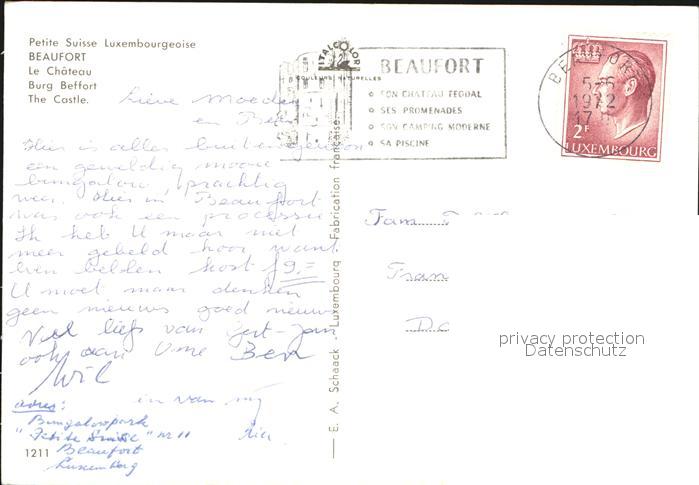 Petite Suisse Luxembourgeoise
BEAUFORT
Le Château
Burg Beffort
The Castle.
ITALCOLOR
COULEURS NATURELLES
BEAUFORT
SON CHATEAU FEODAL
SES PROMENADES
SON CAMPING MODERNE
SA PISCINE
5-6
1972
17
2F
LUXEMBOURG
Lieve Moeder
en
Hier is alles buitengewoon
een geweldig mooie
bungalow, prachtig
weer. Hier in Beaufort
was ook een processie
Ik heb U maar niet
meer gebeld hoor want
even bellen kost f 9,=
U moet maar denken
geen nieuws goed nieuws
Veel liefs van Gert-Jan
ook aan Ome Ben
Wil
en van mij
Ria
adres:
Bungalowpark
"Petite Suisse" nr 11
Beaufort
Luxemburg
1211
E. A. Schaack - Luxembourg - Fabrication française.
Fam.
Fran
Do
privacy protection
Datenschutz